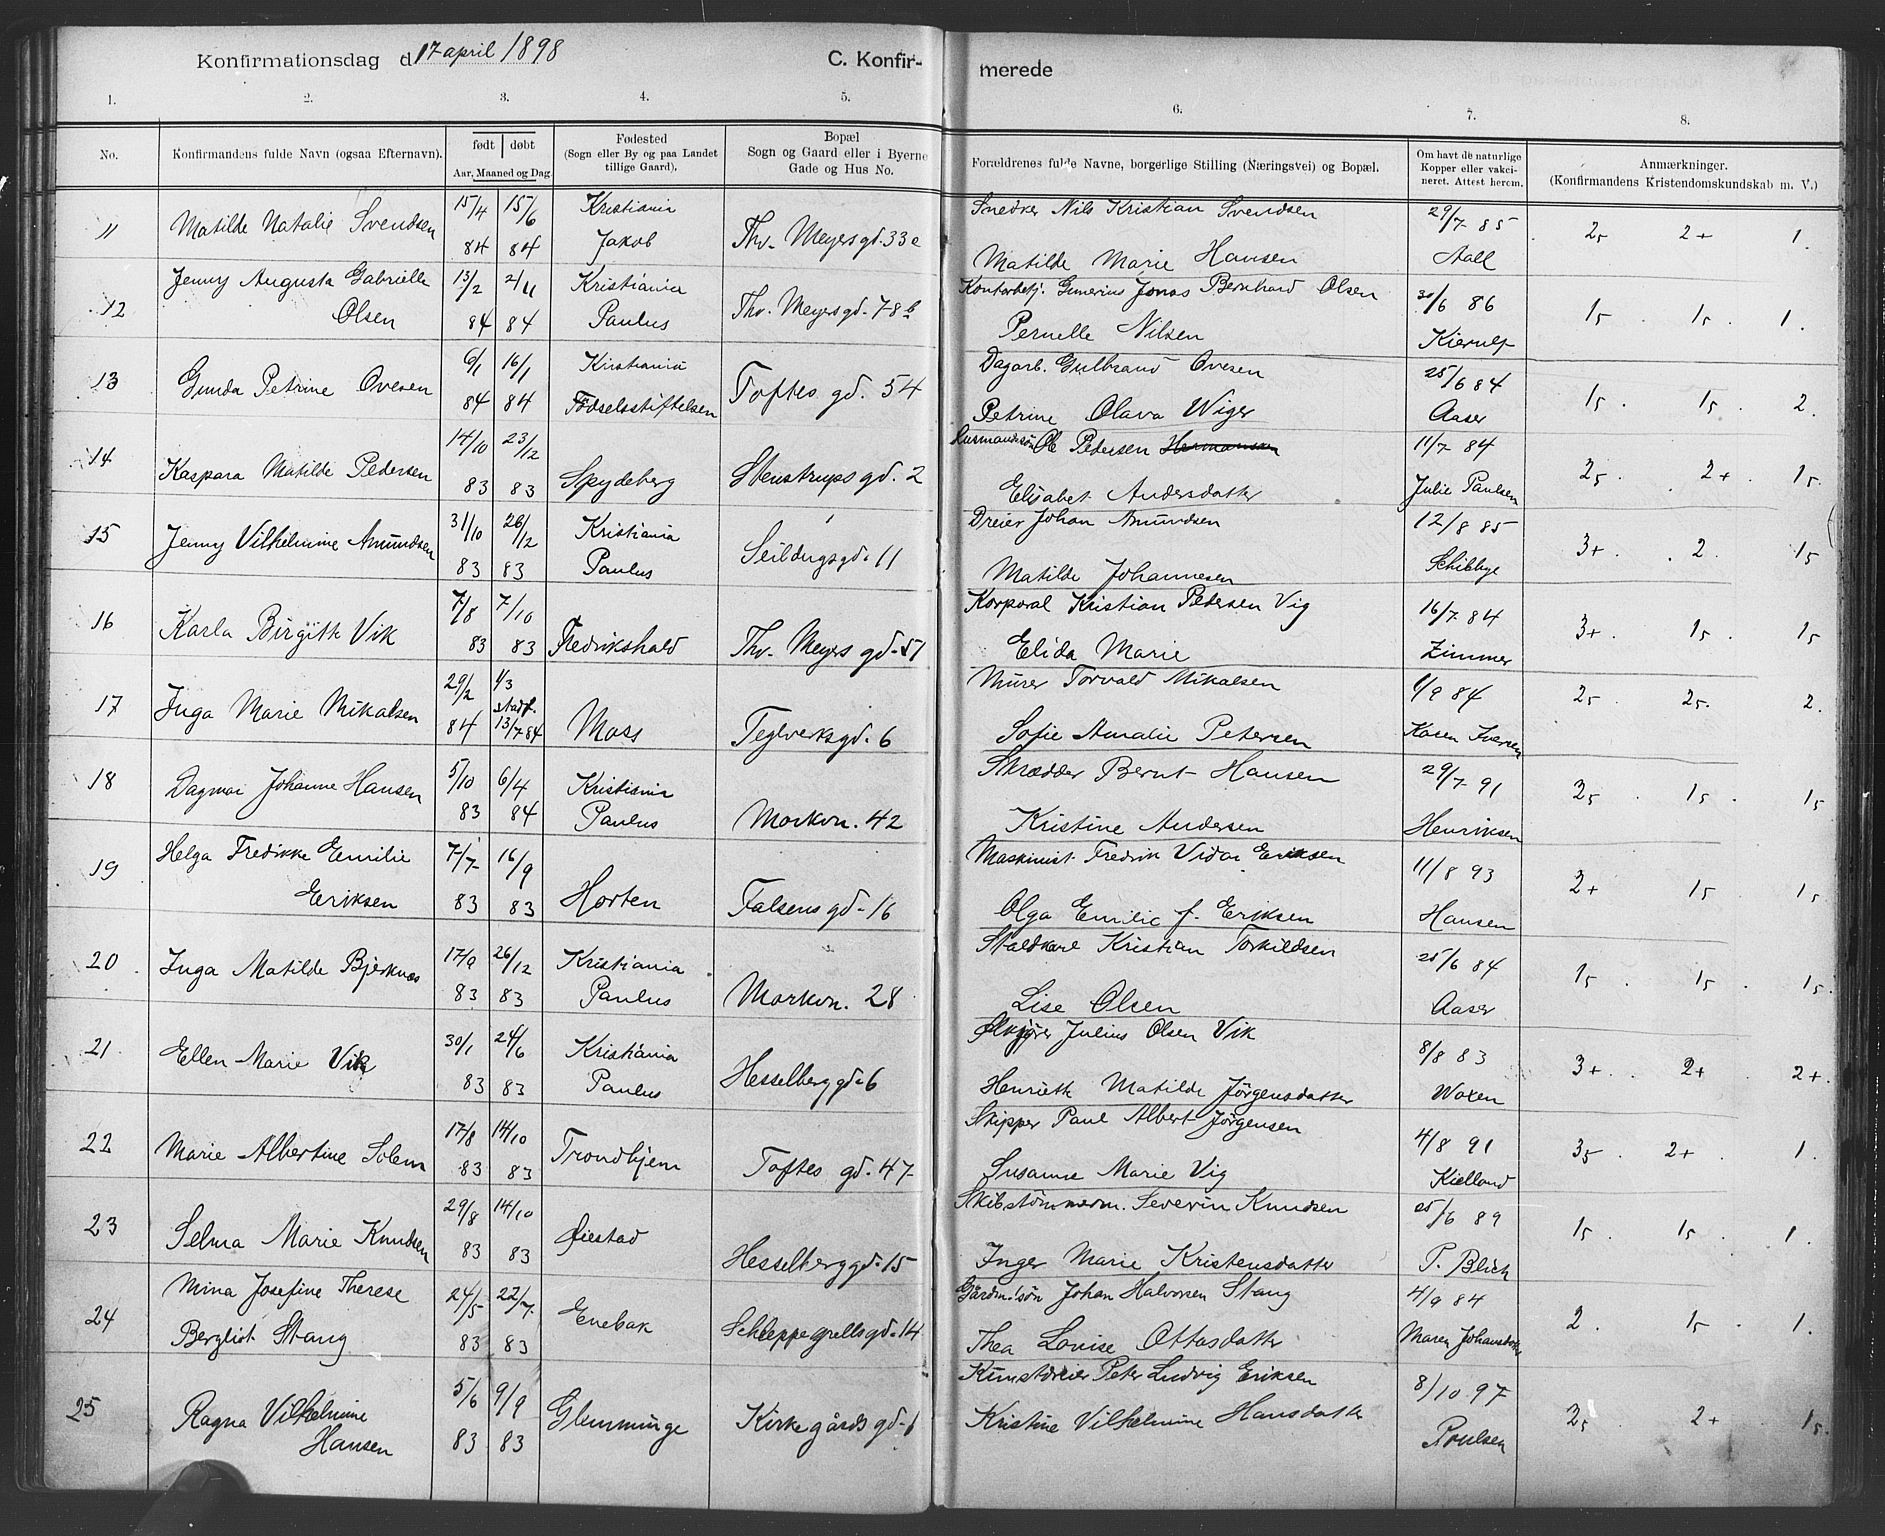 Konfirmationsdag d. 17 april 1898 C. Konfir- merede
1. 2. 3. 4. 5. 6. 7. 8.
No. Konfirmandens fulde Navn (ogsaa Efternavn). født døbt Aar, Maaned og Dag. Fødested (Sogn eller By og paa Landet tillige Gaard). Bopæl Sogn og Gaard eller i Byerne Gade og Hus No. Forældrenes fulde Navne, borgerlige Stilling (Næringsvei) og Bopæl. Om havt de naturlige Kopper eller vakcineret. Attest herom. Anmærkninger. (Konfirmandens Kristendomskundskab m. V.)
11 Matilde Natalie Svendsen 15/4 84 15/6 84 Kristiania Jakob Thv. Meyers gd. 33c Snedker Nils Kristian Svendsen 29/7 85
Matilde Marie Hansen Aall 25 2+ 1.
12 Jenny Augusta Gabrielle Olsen 13/2 84 2/11 84 Kristiania Paulus Thv. Meyers gd. 78b Kontorbetj. Gunerius Jonas Bernhard Olsen 30/6 86
Pernelle Nilsen Kierulf 15 . 15 . 1.
13 Gunda Petrine Ovesen 6/1 84 16/1 84 Kristiania Fødselsstiftelsen Toftes gd. 54 Dagarb. Gulbrand Ovesen 25/6 84
Petrine Olava Wiger Aaser 15 . 15 . 2.
14 Kaspara Matilde Pedersen 14/10 83 23/12 83 Spydeberg Stenstrups gd. 2 Ole Pedersen Hermansen 11/7 84
Elisabet Andersdatter Julie Paulsen 25 . 2+ . 15
15 Jenny Vilhelmine Amundsen 31/10 83 26/12 83 Kristiania Paulus Seildugsgd. 11 Dreier Johan Amundsen 12/8 85
Matilde Johannesen Schibbye 3+ . 2. 15
16 Karla Birgitte Vik 7/8 83 7/10 83 Fredrikshald Thv. Meyers gd. 51 Korporal Kristian Pedersen Vig 16/7 84
Elida Marie Zimmer 3+ . 15 . 15
17 Inga Marie Mikalsen 29/2 84 4/3 stadf. 13/7 84 Moss Teglverksgd. 6 Murer Torvald Mikalsen 1/9 84
Sofie Amalie Petersen Karen Iversen 25 . 25 . 2.
18 Dagmar Johanne Hansen 5/10 83 6/4 84 Kristiania Paulus Markvn. 42 Skrædder Bernt Hansen 29/7 91
Kristine Andersen Henriksen 25 . 15 . 15
19 Helga Fredikke Emilie Eriksen 7/7 83 16/9 83 Horten Falsens gd. 16 Maskinist Fredrik Vidar Eriksen 11/8 93
Olga Emilie f. Eriksen Hansen 2+ 15 15
20 Inga Matilde Bjerknæs 17/9 83 26/12 83 Kristiania Paulus Markvn. 28 Staldkarl Kristian Torkildsen 25/6 84
Lise Olsen Aaser 15 . 15 . 15.
21 Ellen Marie Vik 30/1 83 24/6 83 Kristiania Paulus Hesselberg gd. 6 Julius Olsen Vik 8/8 83
Henriette Matilde Jørgensdatter Woxen 3+ . 2+ . 2+.
22 Marie Albertine Solem 17/8 83 14/10 83 Trondhjem Toftes gd. 47 Skipper Paul Albert Jørgensen 4/8 91
Susanne Marie Vig Kielland 35 . 2+ . 1.
23 Selma Marie Knudsen 29/8 83 14/10 83 Øiestad Hesselberg gd. 15 Skibstømmerm. Severin Knudsen 25/6 89
Inger Marie Kristensdatter P. Blich 15 . 15 . 1.
24 Mina Josefine Therese Bergliot Stang 24/5 83 22/7 83 Enebak Schleppegrellsgd. 14 Gårdm.søn Johan Halvorsen Stang 4/9 84
Thea Lovise Ottosdatter Maren Johansdatter 2. 15 . 1.
25 Ragna Vilhelmine Hansen 5/6 83 9/9 83 Glemminge Kirkegårds gd. 6 Kunstdreier Peter Ludvig Eriksen 8/10 97
Kristine Vilhelmine Hansdatter Poulsen 25 2+ 15.